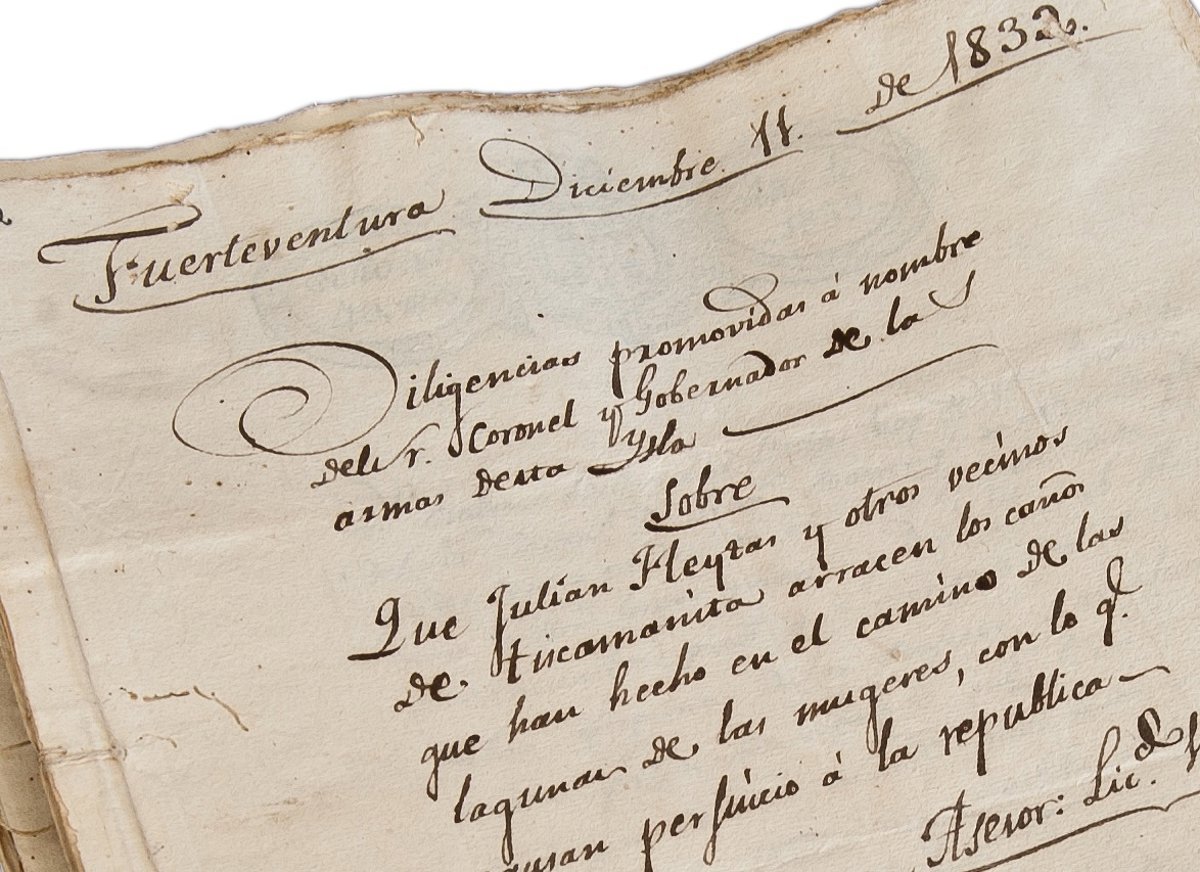 Fuerteventura Diciembre 11. de 1832.
Diligencias promovidas á nombre
del Sr. Coronel y Gobernador de la
armas desta Ysla
Sobre
Que Julian Fleytas y otros vecinos
de Tiscamanita arracen los caños
que han hecho en el camino de las
lagunas de las mugeres, con lo q.
causan perjuicio á la republica
Asesor: Lic.d